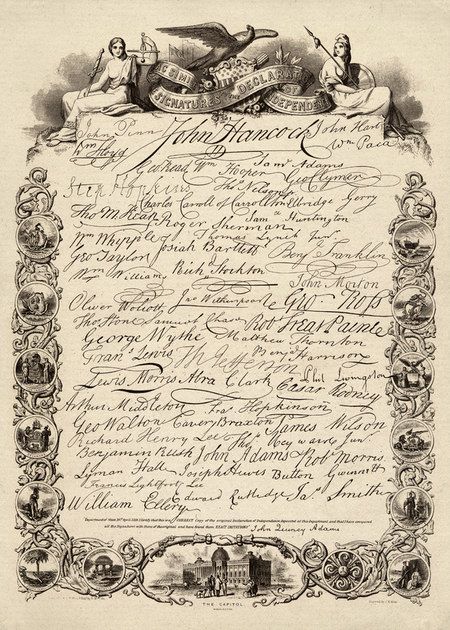 FAC SIMILE
SIGNATURES TO THE DECLARATION OF INDEPENDENCE
John Penn John Hancock John Hart
Wm Hooper Saml Adams Wm Paca
Geo Read Geo Clymer
Step Hopkins Thos Nelson jr
Charles Carroll of Carrollton Elbridge Gerry
Tho M:Kean Roger Sherman Saml Huntington
Wm Whipple Thomas Lynch Junr
Geo Taylor Josiah Bartlett Benj Franklin
Wm Williams Richd Stockton
John Morton
Oliver Wolcott Jno Witherspoon Geo Ross
Thos Stone Samuel Chase Robt Treat Paine
George Wythe Matthew Thornton
Frans Lewis Th Jefferson Benj Harrison
Lewis Morris Abra Clark Phil Livingston
Casar Rodney
Arthur Middleton Fras Hopkinson
Geo Walton Carter Braxton James Wilson
Richard Henry Lee Thos Heyward Junr
Benjamin Rush John Adams Robt Morris
Lyman Hall Joseph Hewes Button Gwinnett
Francis Lightfoot Lee
William Ellery Edward Rutledge Jas Smith
Department of State 19th April 1819. I certify that this is a CORRECT copy of the original Declaration of Independence deposited at this Department and that I have compared
all the signatures with those of the original and have found them EXACT IMITATIONS. John Quincy Adams
THE CAPITOL